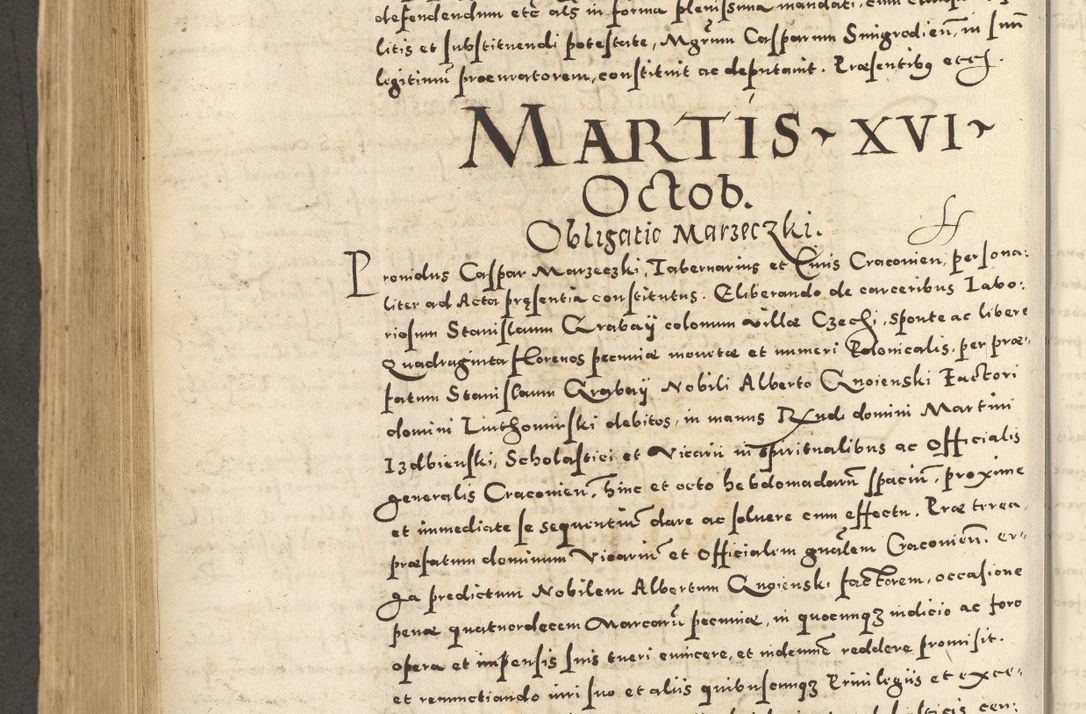 defendendum etc̃ als in forma plenissima mandati, cum
litis et substituendi potestate, Mgrũm Casparum Smigrodieñ, in suũ
legitimũ procuratorem, constituit ac deputauit. Præsentibꝰ etc̃
MARTIS ~ XVI ~
Octob.
Obligatio Marzeczki.
Prouidus Caspar Marzeczki, Tabernarius et Ciuis Cracouien, persona:
liter ad Acta pręsentia constitutus. Eliberando de carceribus Labo:
riosum Stanislaum Grabaÿ colonum villæ Czechi, sponte ac libere
Quadraginta florenos pecuniæ monetæ et numeri Polonicalis, per præ:
fatum Stanislaum Grabaÿ Nobili Alberto Gnoienski Factori
domini Luthomirski debitos, in manus Rẽnd domini Martini
Izdbienski, Scholastici et Vicarii in spiritualibus ac Officialis
generalis Cracouieñ, hinc et octo hebdomadarũ spaciũ, proxime
et immediate se sequentiũ dare ac soluere cum effectu. Præterea,
præfatum dominum Vicariũ et Officialem gñalem Cracouieñ. er:
ga predictum Nobilem Albertum Gnoienski factorem, occasione
penæ quatuordecem Marcarũ pecuniæ, in quocunqꝫ iudicio ac foro
opera et impensis suis tueri euincere, et indemnẽ reddere promisit.
et renunctiando iuri suo et aliis quibuscunqꝫ Priuilegiis et exce: